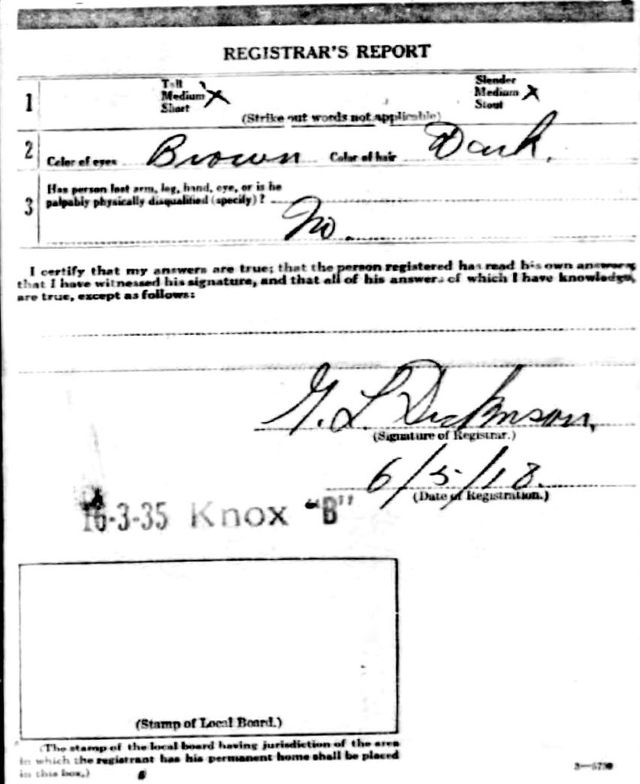 REGISTRAR'S REPORT
1 Tall Medium X Short Slender Medium X Stout
(Strike out words not applicable)
2 Color of eyes Brown Color of hair Dark.
Has person lost arm, leg, hand, eye, or is he
3 palpably physically disqualified (specify)?
No.
I certify that my answers are true; that the person registered has read his own answers,
that I have witnessed his signature, and that all of his answers of which I have knowledge,
are true, except as follows:
L Dickinson,
(Signature of Registrar.)
6/5/18.
(Date of Registration.)
16-3-35 Knox "B"
(Stamp of Local Board.)
(The stamp of the local board having jurisdiction of the area
in which the registrant has his permanent home shall be placed
in this box.)